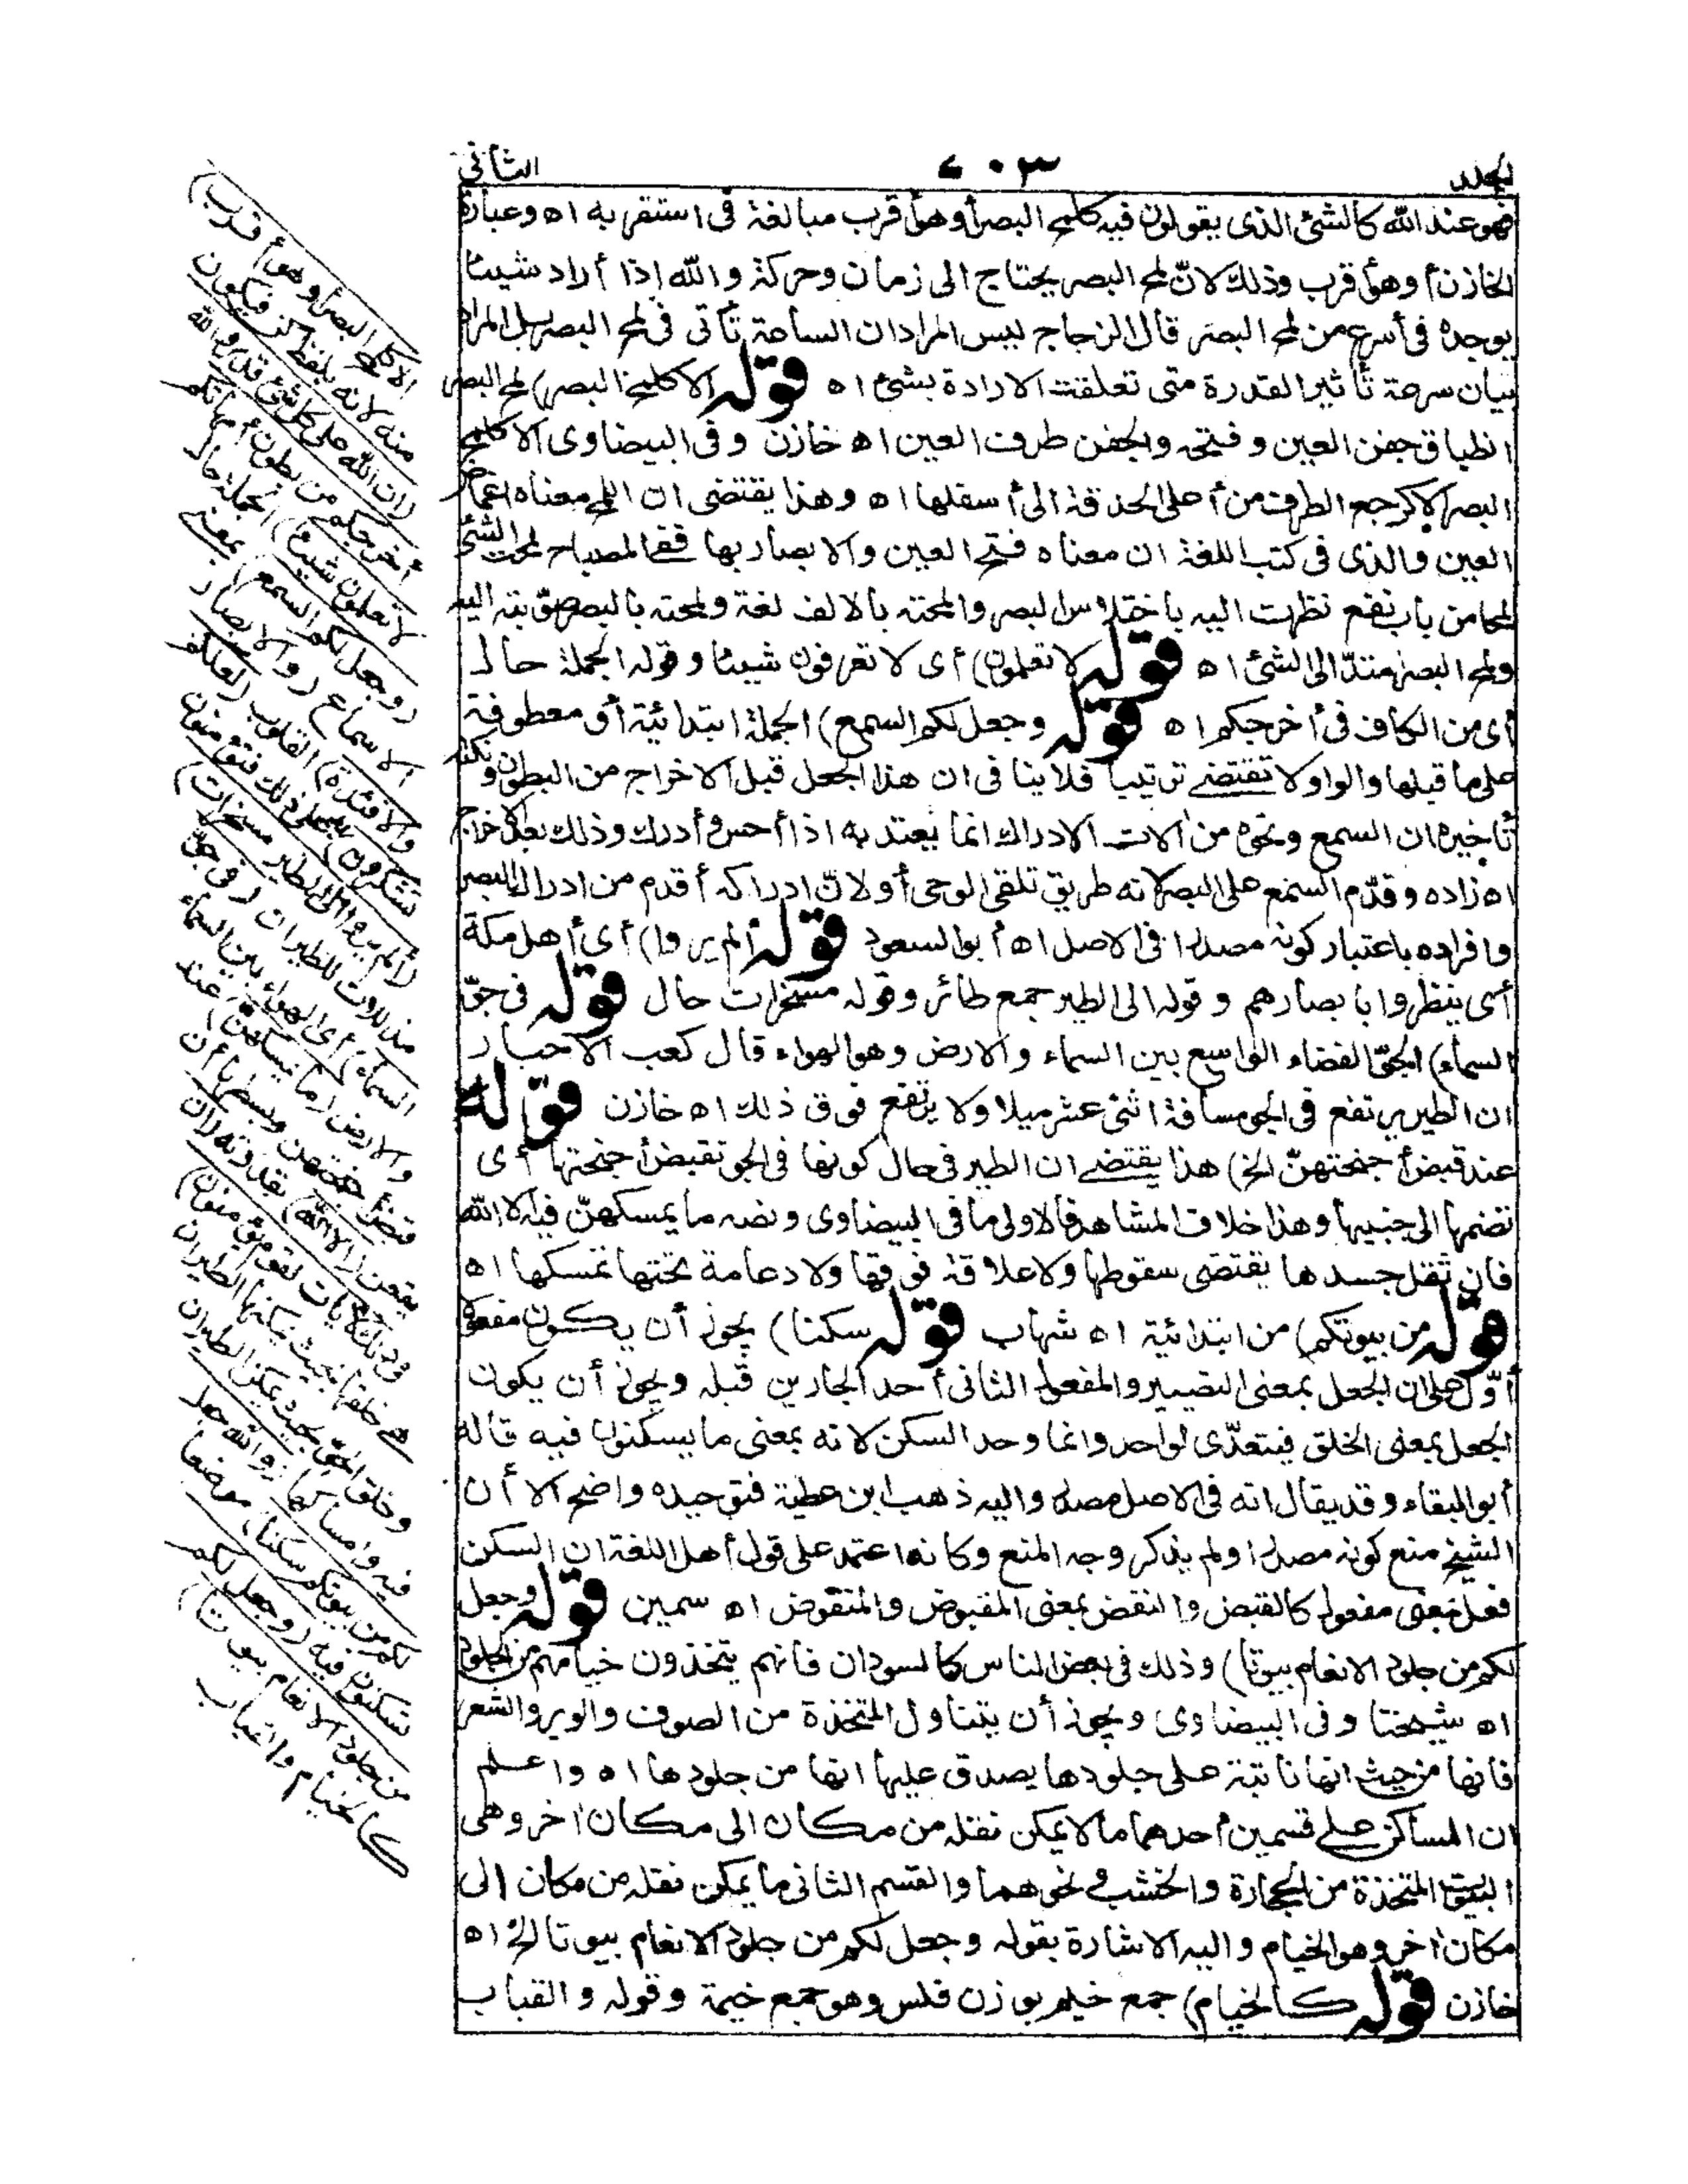 المجلد ٦٠٣ الثانى
فهو عند الله كالشئ الذى يقولون فيه كلمح البصر أو هو أقرب مبالغة فى استقربه اه وعبارة
الخازن أو هو أقرب وذلك لانّ لمح البصر يحتاج الى زمان وحركة والله اذا أراد شيئا
يوجده فى أسرع من لمح البصر قال الزجاج ليس المراد ان الساعة تأتى فى لمح البصر بل المراد
بيان سرعة تأثير القدرة متى تعلقت الارادة بشئ اه قوله الا كلمح البصر) لمح البصر
انطباق جفن العين وفتحه والجفن طرف العين اه خازن وفى البيضاوى الا كلمح
البصر الا كرجع الطرف من أعلى الحدقة الى أسفلها اه وهذا يقتضى ان اللمح معناه اغماض
العين والذى فى كتب اللغة ان معناه فتح العين والابصار بها ففى المصباح لمحت الشئ
لمحا من باب نفع نظرت اليه باختلاس البصر والمحته بالالف لغة ولمحته بالبصر صوّبته اليه
ولمح البصر امتدّ الى الشئ اه قوله لا تعلمون) أى لا تعرفون شيئا وقوله الجملة حال
أى من الكاف فى أخرجكم اه قوله وجعل لكم السمع) الجملة ابتدائية أو معطوفة
على ما قبلها والواو لا تقتضى ترتيبا فلا ينافى ان هذا الجعل قبل الاخراج من البطون ونكتة
تأخيره ان السمع ونحوه من الات الادراك انما يعتد به اذا أحس وأدرك وذلك بعد الاخراج
اه زاده وقدّم السمع على البصر لانه طريق تلقى الوحى أو لانّ ادراكه أقدم من ادراك البصر
وافراده باعتبار كونه مصدرا فى الاصل اه أبو السعود قوله ألم يروا) أى أهل مكة
أى ينظروا بابصارهم وقوله الى الطير جمع طائر وقوله مسخرات حال قوله فى جوّ
السماء) الجوّ الفضاء الواسع بين السماء والارض وهو الهواء قال كعب الاحبار
ان الطير يرتفع فى الجو مسافة اثنى عشر ميلا ولا يرتفع فوق ذلك اه خازن قوله
عند قبض أجنحتهنّ الخ) هذا يقتضى ان الطير فى حال كونها فى الجو تقبض أجنحتها أى
تضمها الى جنبيها وهذا خلاف المشاهد فالاولى ما فى البيضاوى ونصه ما يمسكهنّ فيه الا الله
فان ثقل جسدها يقتضى سقوطها ولا علاقة فوقها ولا دعامة تحتها تمسكها اه
قوله من بيوتكم) من ابتدائية اه شهاب قوله سكنا) يجوز أن يكون مفعولا
أوّل على ان الجعل بمعنى التصيير والمفعول الثانى أحد الجارين قبله ويجوز أن يكون
الجعل بمعنى الخلق فيتعدّى لواحد وانما وحد السكن لانه بمعنى ما يسكنون فيه قاله
أبو البقاء وقد يقال انه فى الاصل مصدر واليه ذهب ابن عطية فتوحيده واضح الا أن
الشيخ منع كونه مصدرا ولم يذكر وجه المنع وكانه اعتمد على قول أهل اللغة ان السكن
فعل بمعنى مفعول كالقبض والنقض بمعنى المقبوض والمنقوض اه سمين قوله وجعل
لكم من جلود الانعام بيوتا) وذلك فى بعض الناس كالسودان فانهم يتخذون خيامهم من الجلود
اه شيخنا وفى البيضاوى ويجوز أن يتناول المتخذة من الصوف والوبر والشعر
فانها من حيث انها نابتة على جلودها يصدق عليها انها من جلودها اه واعلم
ان المساكن على قسمين أحدهما ما لا يمكن نقله من مكان الى مكان اخر وهى
البيوت المتخذة من الحجارة والخشب ونحوهما والقسم الثانى ما يمكن نقله من مكان الى
مكان اخر وهو الخيام واليه الاشارة بقوله وجعل لكم من جلود الانعام بيوتا الخ اه
خازن قوله كالخيام) جمع خيم بوزن فلس وهو جمع خيمة وقوله والقباب
الا كلمح البصر أو هو أقرب)
منه لانه بلفظ كن فيكون
(ان الله على كل شئ قدير والله
أخرجكم من بطون أمهاتكم
لا تعلمون شيئا) الجملة حال
(وجعل لكم السمع) بمعنى
الاسماع (والابصار
والافئدة) القلوب (لعلكم
تشكرون) على ذلك فتؤمنون
(ألم يروا الى الطير مسخرات)
مذللات للطيران (فى جوّ
السماء) أى الهواء بين السماء
والارض (ما يمسكهنّ) عند
قبض أجنحتهن وبسطها أن
يقعن (الا الله) بقدرته (ان
فى ذلك لايات لقوم يؤمنون)
هى خلقها بحيث يمكنها الطيران
وخلق الجوّ بحيث يمكن الطيران
فيه وامساكها (والله جعل
لكم من بيوتكم سكنا) موضعا
تسكنون فيه (وجعل لكم
من جلود الانعام بيوتا)
كالخيام والقباب